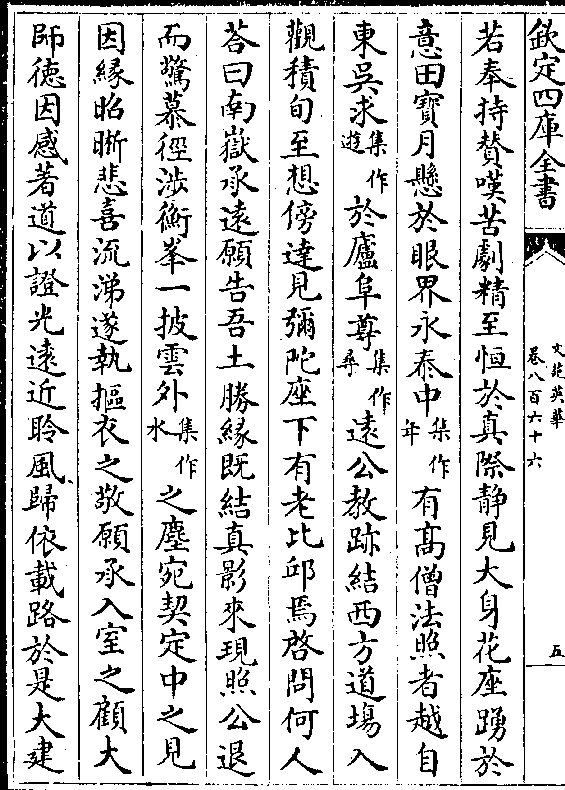 欽定四庫全書
文苑英華
卷八百六十六
五
若奉持賛嘆苦劇精至恒於真際静見大身花座踴於
意田寳月懸於眼界永泰中集作年有髙僧法照者越自
東吳求集作遊於廬阜尊集作尋逺公教跡結西方道塲入
觀積旬至想傍達見彌陀座下有老比邱焉啓問何人
荅曰南嶽承逺願告吾土勝縁既結真影來現照公退
而驚慕徑涉衡峯一披雲外集作水之塵宛契定中之見
因縁昭晰悲喜流涕遂執摳衣之敬願承入室之顧大
師徳因感著道以證光逺近聆風歸依載路於是大建